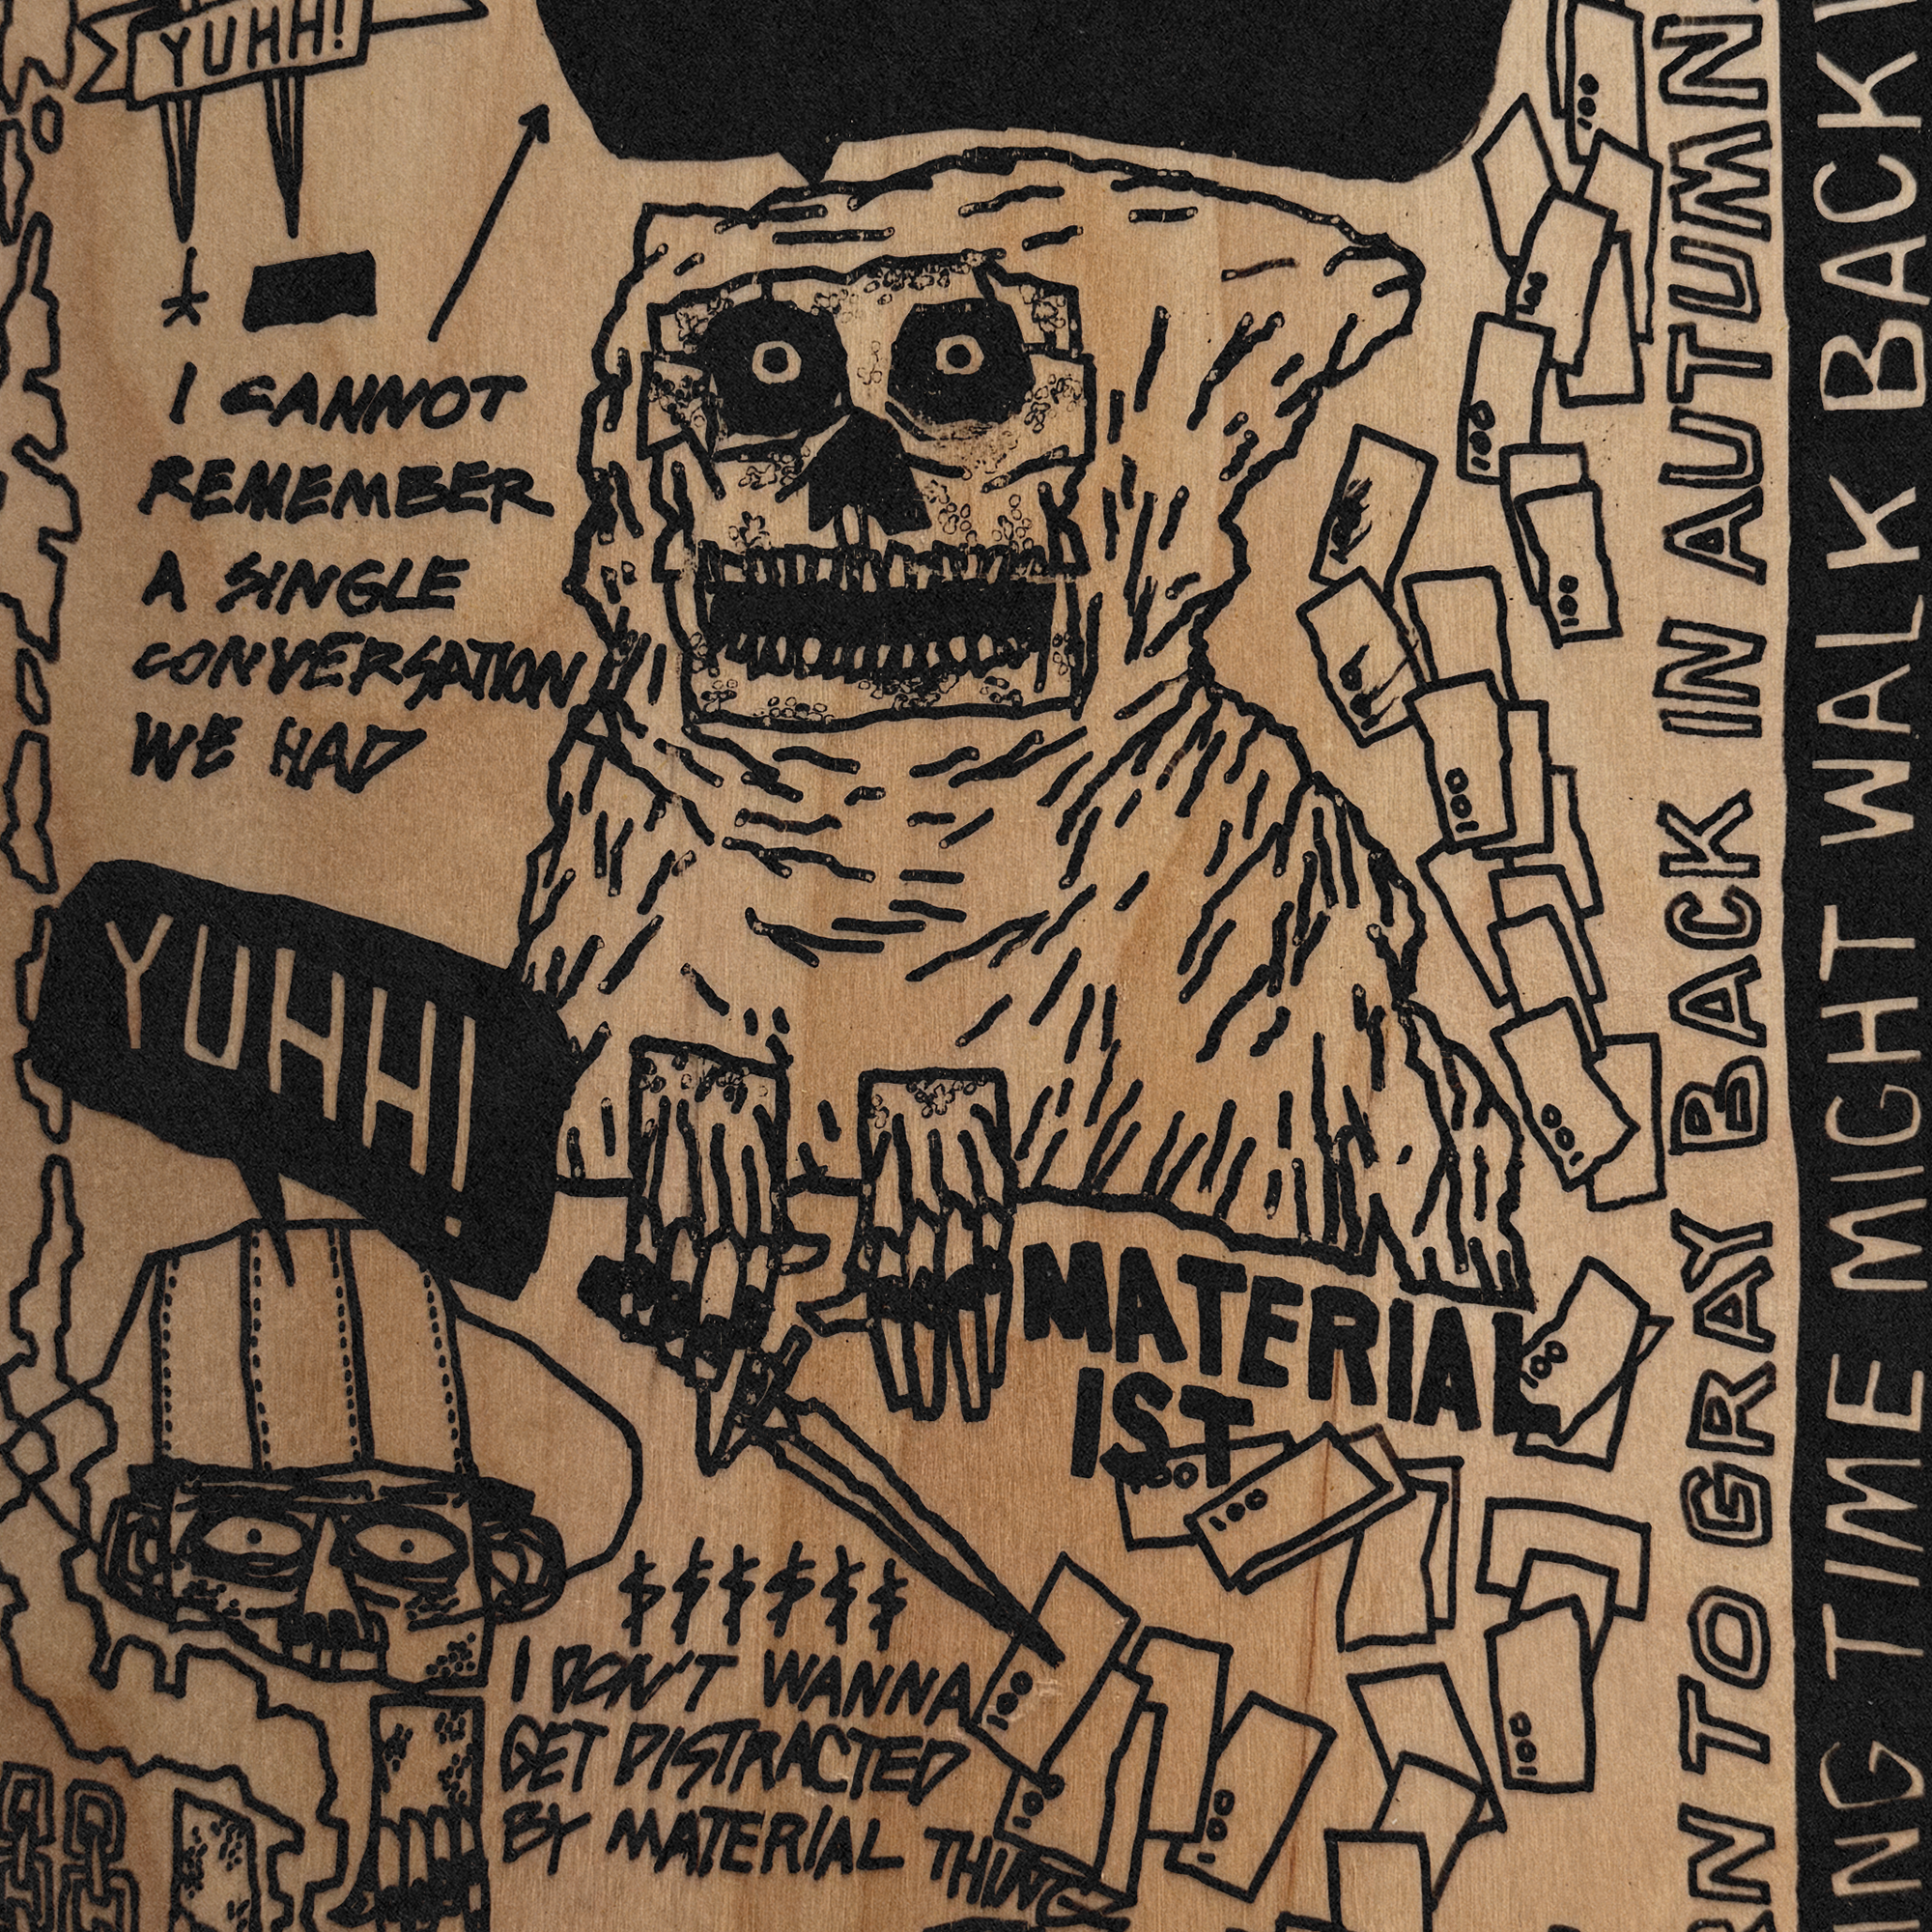 YUHH!
I CANNOT
REMEMBER
A SINGLE
CONVERSATION
WE HAD
YUHH!
MATERIAL
IST
$$$$$$
I DON'T WANNA
GET DISTRACTED
BY MATERIAL THINGS
TO GRAY BACK IN AUTUMN
TIME MIGHT WALK BACK